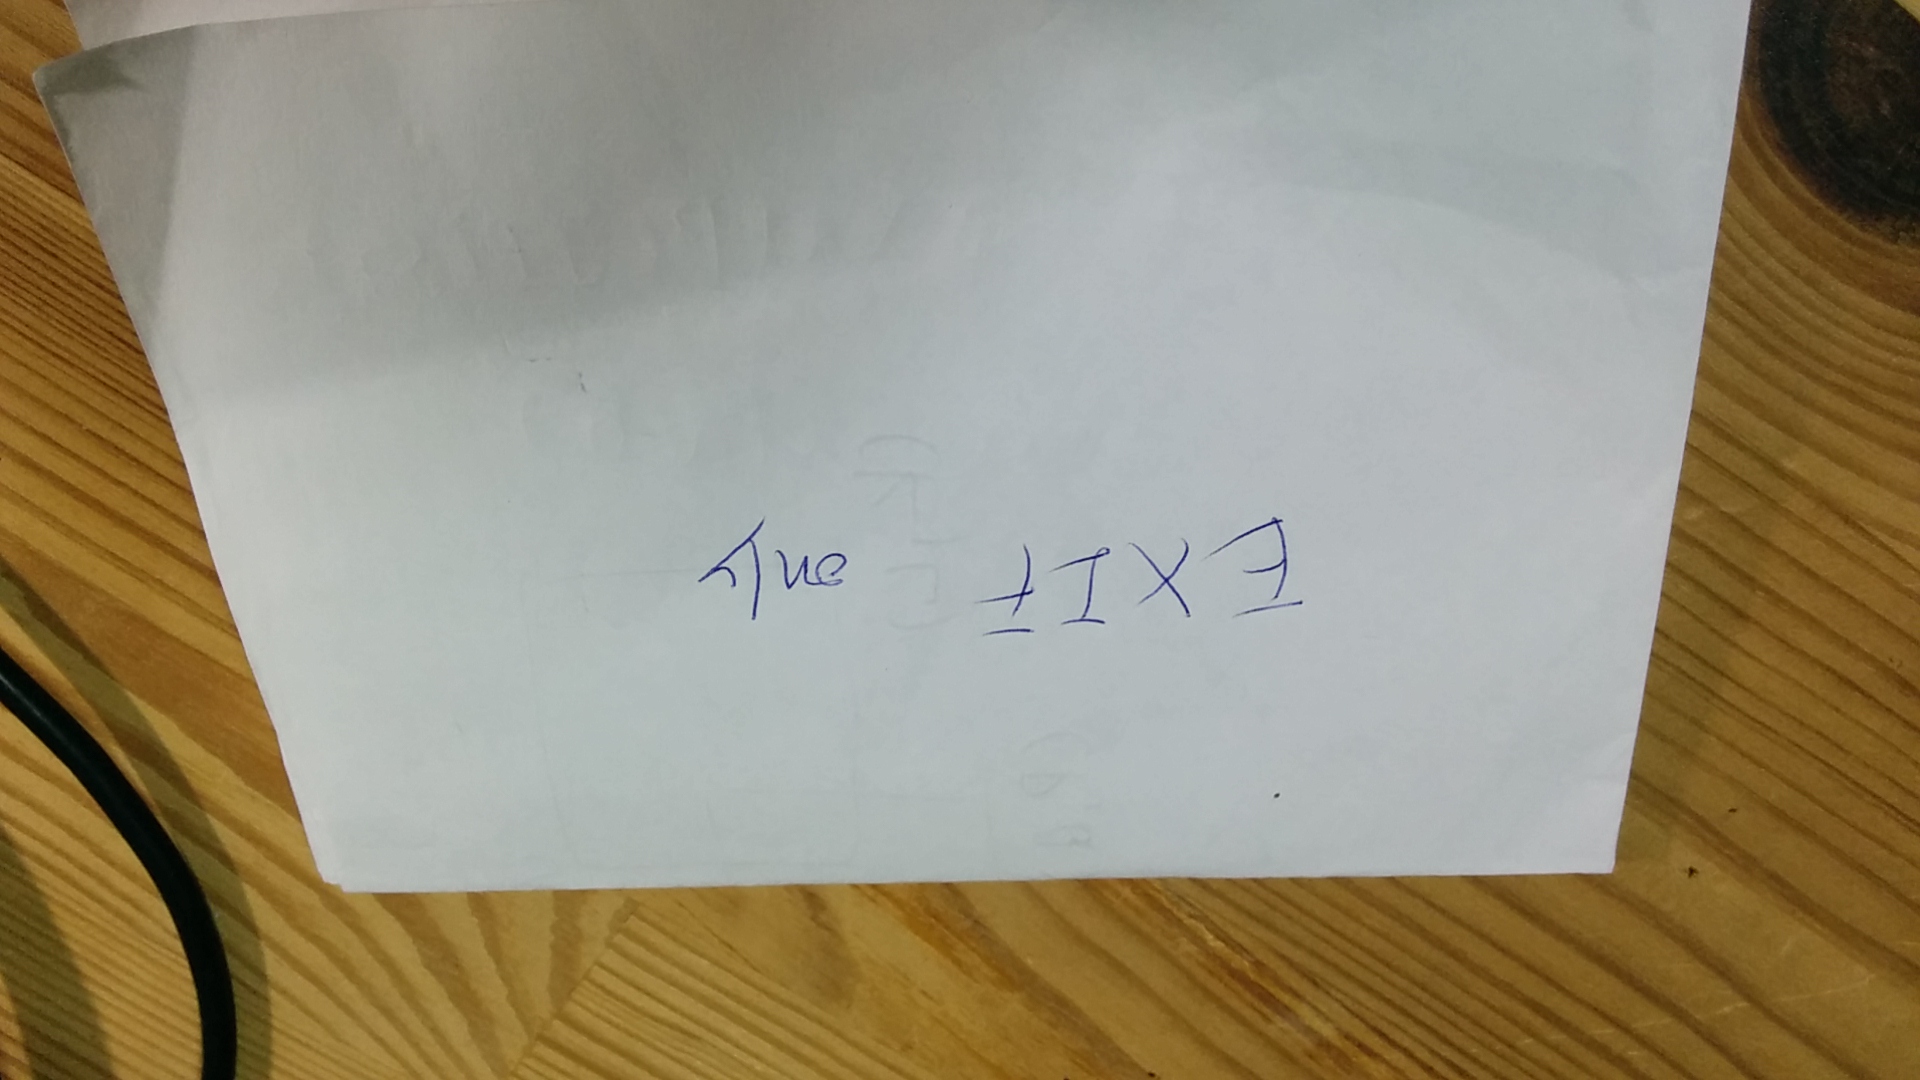 EXIT only